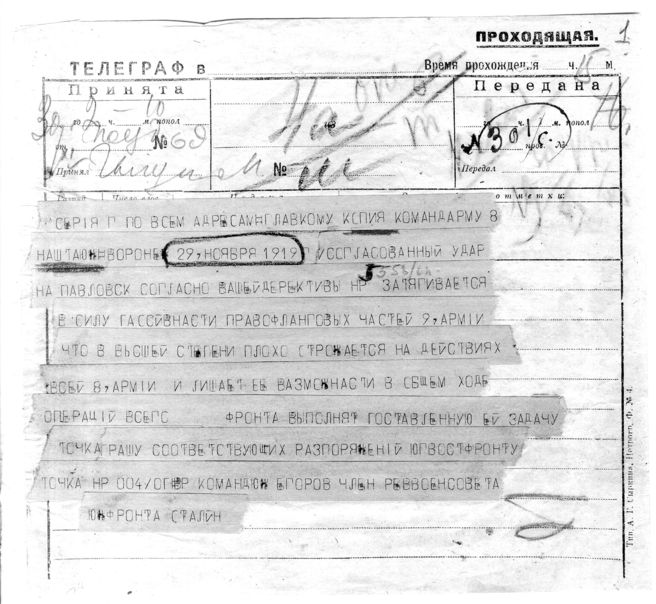 ПРОХОДЯЩАЯ.
1
ТЕЛЕГРАФ в
Время прохожденія ч. 15 м.
Принята
Передана
го ч. м. попол
го ч. м. попол
№ 69
№ 301/с.
Принял
№
Передал
отметки:
СЕРІЯ Г ПО ВСЕМ АДРЕСАМ ГЛАВКОМУ КСПИЯ КОМАНДАРМУ 8
НАШТАЮЖ ВОРОНЕЖ 29, НОЯБРЯ 1919 Г ССГЛАСОВАННЫЙ УДАР
НА ПАВЛОВСК СОГЛАСНО ВАШЕЙ ДЕРЕКТИВЫ НР ЗАТЯГИВАЕТСЯ
В СИЛУ ГАССИВНАСТИ ПРАВОФЛАНГОВЫХ ЧАСТЕЙ 9, АРМІИ
ЧТО В ВЫСШЕЙ СТЕПЕНИ ПЛОХО СТРОЖАЕТСЯ НА ДЕЙСТВИЯХ
ВСЕЙ 8, АРМІИ И ЛИШАЕТ ЕЕ ВАЗМОЖНАСТИ В СБЩЕМ ХОДЕ
ОПЕРАЦІЙ ВСЕГС ФРОНТА ВЫПОЛНЯТ ГОСТАВЛЕННУЮ ЕЙ ЗАДАЧУ
ТОЧКА РАШУ СООТВЕТСТВУЮЩИХ РАЗПОРЯЖЕНІЙ ЮГВОСТФРОНТУ
ТОЧКА НР 004/ОПЕР КОМАНДЮЖ ЕГОРОВ ЧЛЕН РЕВВСЕНСОВЕТА
ЮЖФРОНТА СТАЛИН
Тип. А. Г. Сыркина, Петрогр. Ф. № 4.